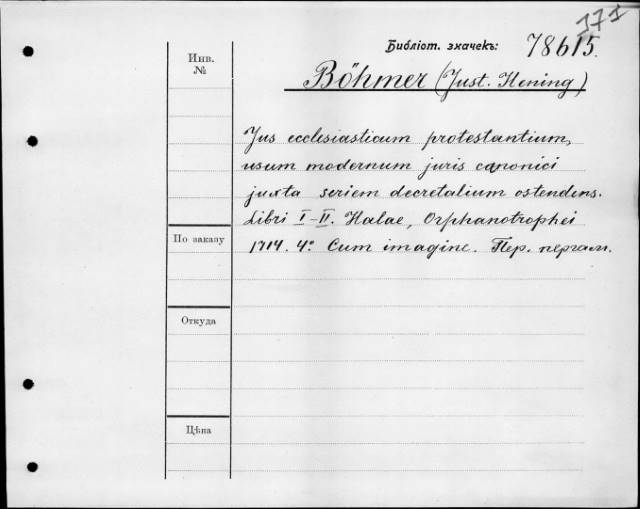 171
Библіот. значекъ: 78615.
Инв. №
Böhmer (Just. Hening)
Jus ecclesiasticum protestantium,
usum modernum juris canonici
juxta seriem decretalium ostendens.
Libri I-II. Halae, Orphanotrophei
1714. 4°. Cum imagine. Пер. пергам.
По заказу
Откуда
Цѣна